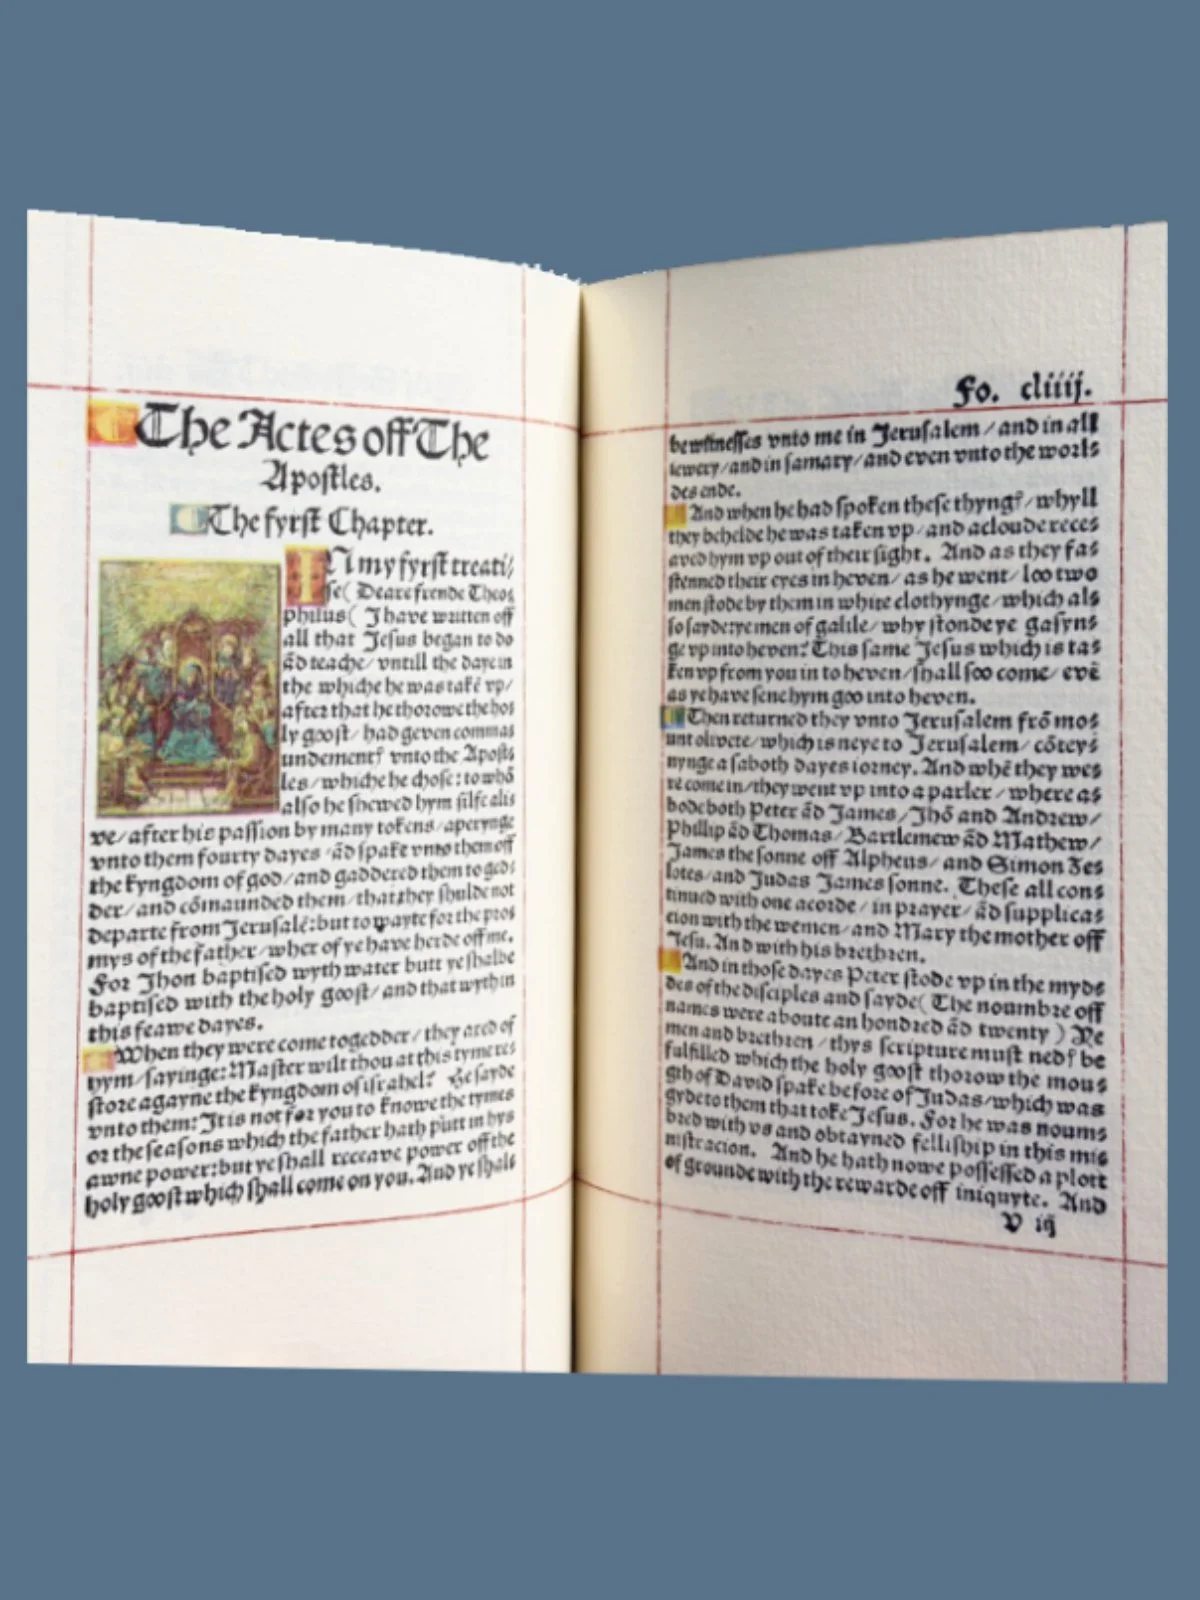 The Actes off The
Apostles.
The fyrst Chapter.
IN my fyrst treati/
se ( Deare frende Theo⸗
philus ( I have written off
all that Jesus began to do
ãd teache/ vntill the daye in
the whiche he was takẽ vp/
after that he thorowe the ho⸗
ly goost/ had geven comma⸗
undementꝭ vnto the Apost⸗
les/ whiche he chose: to whõ
also he shewed hym silfe ali⸗
ve/ after his passion by many tokens/ aperynge
vnto them fourty dayes/ ãd spake vnto them off
the kyngdom of god/ and gaddered them to ged⸗
der/ and cõmaunded them/ that they shulde not
departe from Jerusalẽ: but to wayte for the pro⸗
mys of the father/ wher of ye have herde off me.
For Jhon baptised wyth water butt ye shalbe
baptised with the holy goost/ and that wyth in
this feawe dayes.
When they were come togedder/ they axed of
hym/ sayinge: Master wilt thou at this tyme re⸗
store agayne the kyngdom of israhel? He sayde
vnto them: It is not for you to knowe the tymes
or the seasons which the father hath putt in hys
awne power: but ye shall receave power off the
holy goost which shall come on you. And ye shal⸗
Fo. cliiij.
bewitnesses vnto me in Jerusalem/ and in all
iewery/ and in samary/ and even vnto the worl⸗
des ende.
And when he had spoken these thyngꝭ/ whyll
they behelde he was taken vp/ and a cloude rece⸗
aved hym vp out of their sight. And as they fa⸗
stenned their eyes in heven/ as he went/ loo two
men stode by them in white clothynge/ which al⸗
so sayde: ye men of galile/ why stonde ye gasyn⸗
ge vp into heven? This same Jesus which is ta⸗
ken vp from you in to heven/ shall soo come/ evẽ
as ye have sene hym goo into heven.
Then returned they vnto Jerusalem frõ mo⸗
unt olivete/ which is neye to Jerusalem/ cõtey⸗
nynge a saboth dayes iorney. And whẽ they we⸗
re come in/ they went vp into a parler/ where a⸗
bode both Peter ãd James/ Jhõ and Andrew/
Phillip ãd Thomas/ Bartlemew ãd Mathew/
James the sonne off Alpheus/ and Simon Ze⸗
lotes/ and Judas James sonne. These all con⸗
tinued with one acorde/ in prayer/ ãd supplica⸗
cion with the wemen/ and Mary the mother off
Jesu. And with his brethren.
And in those dayes Peter stode vp in the myd⸗
des of the disciples and sayde ( The noumbre off
names were aboute an hondred ãd twenty ) Ye
men and brethren/ thys scripture must nedꝭ be
fulfilled which the holy goost thorow the mou⸗
gth of David spake before of Judas/ which was
gyde to them that toke Jesus. For he was noum⸗
bred with vs and obtayned felliship in this mi⸗
nistracion. And he hath nowe possessed a plott
of grounde with the rewarde off iniquyte. And
V iij